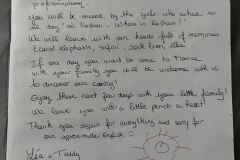 You will be missed by the girls who asked us
all day
We will leave with our heads full of memories
(camel elephants, safari, rock lion, ella
If one day you want to come to France
with your family you will be welcome with us
to discover our country!
Enjoy these next few days with your little family!
We leave you with a little pinch a heart!
Thank you again for everything and sorry for
our approximate english
Léa & Teddy